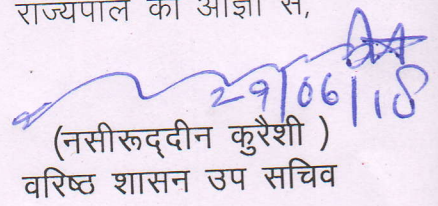 राज्यपाल की आज्ञा से,
29/06/18
(नसीरूद्दीन कुरैशी )
वरिष्ठ शासन उप सचिव